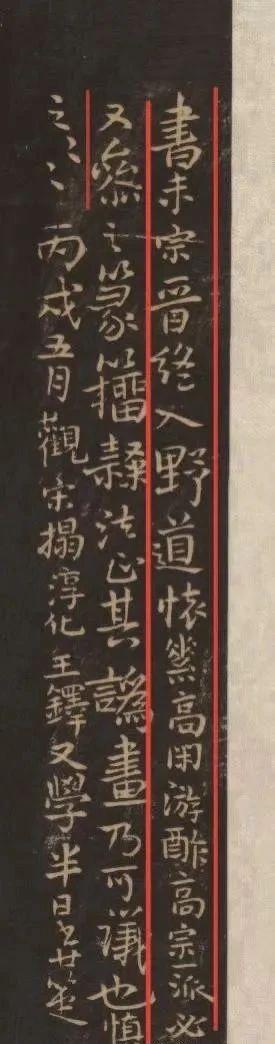 書未宗晉終入野道懷素高閑游酢高宗一派必
又參之篆籀隸法正其譌畫乃可議也慎
之〻〻丙戌五月觀宋搨淳化王鐸又學半日書廿